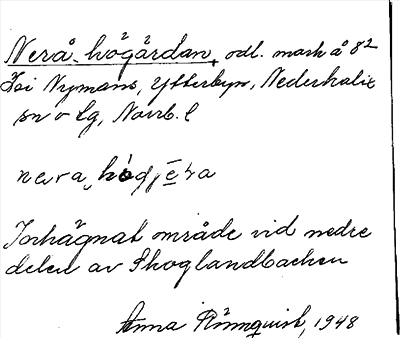 Nerå-högårdan, odl. mark å 8²
Foi Nymans, Ytterbyn, Nederkalix
sn o lg, Norrb. l
nera, hógjera
Inhägnat område vid nedre
delen av Skoglandbacken
Anna Rönnquist, 1948